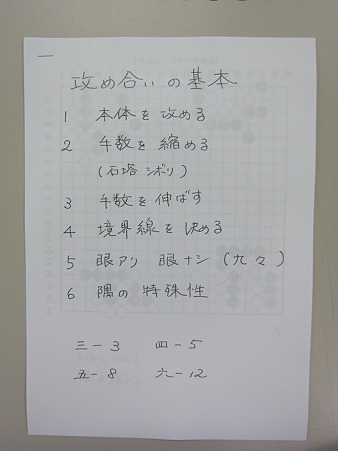 一
攻め合いの基本
1 本体を攻める
2 手数を縮める
(石塔シボリ)
3 手数を伸ばす
4 境界線を決める
5 眼アリ 眼ナシ (九々)
6 隅の特殊性
三-3 四-5
五-8 六-12